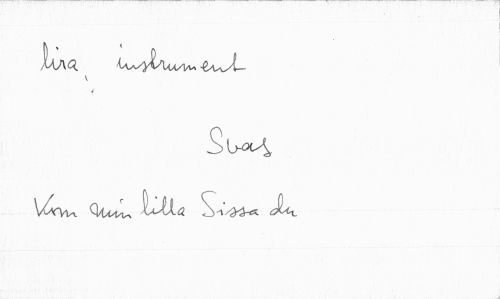 lira, instrument
Svas
Kom min lilla Sissa du